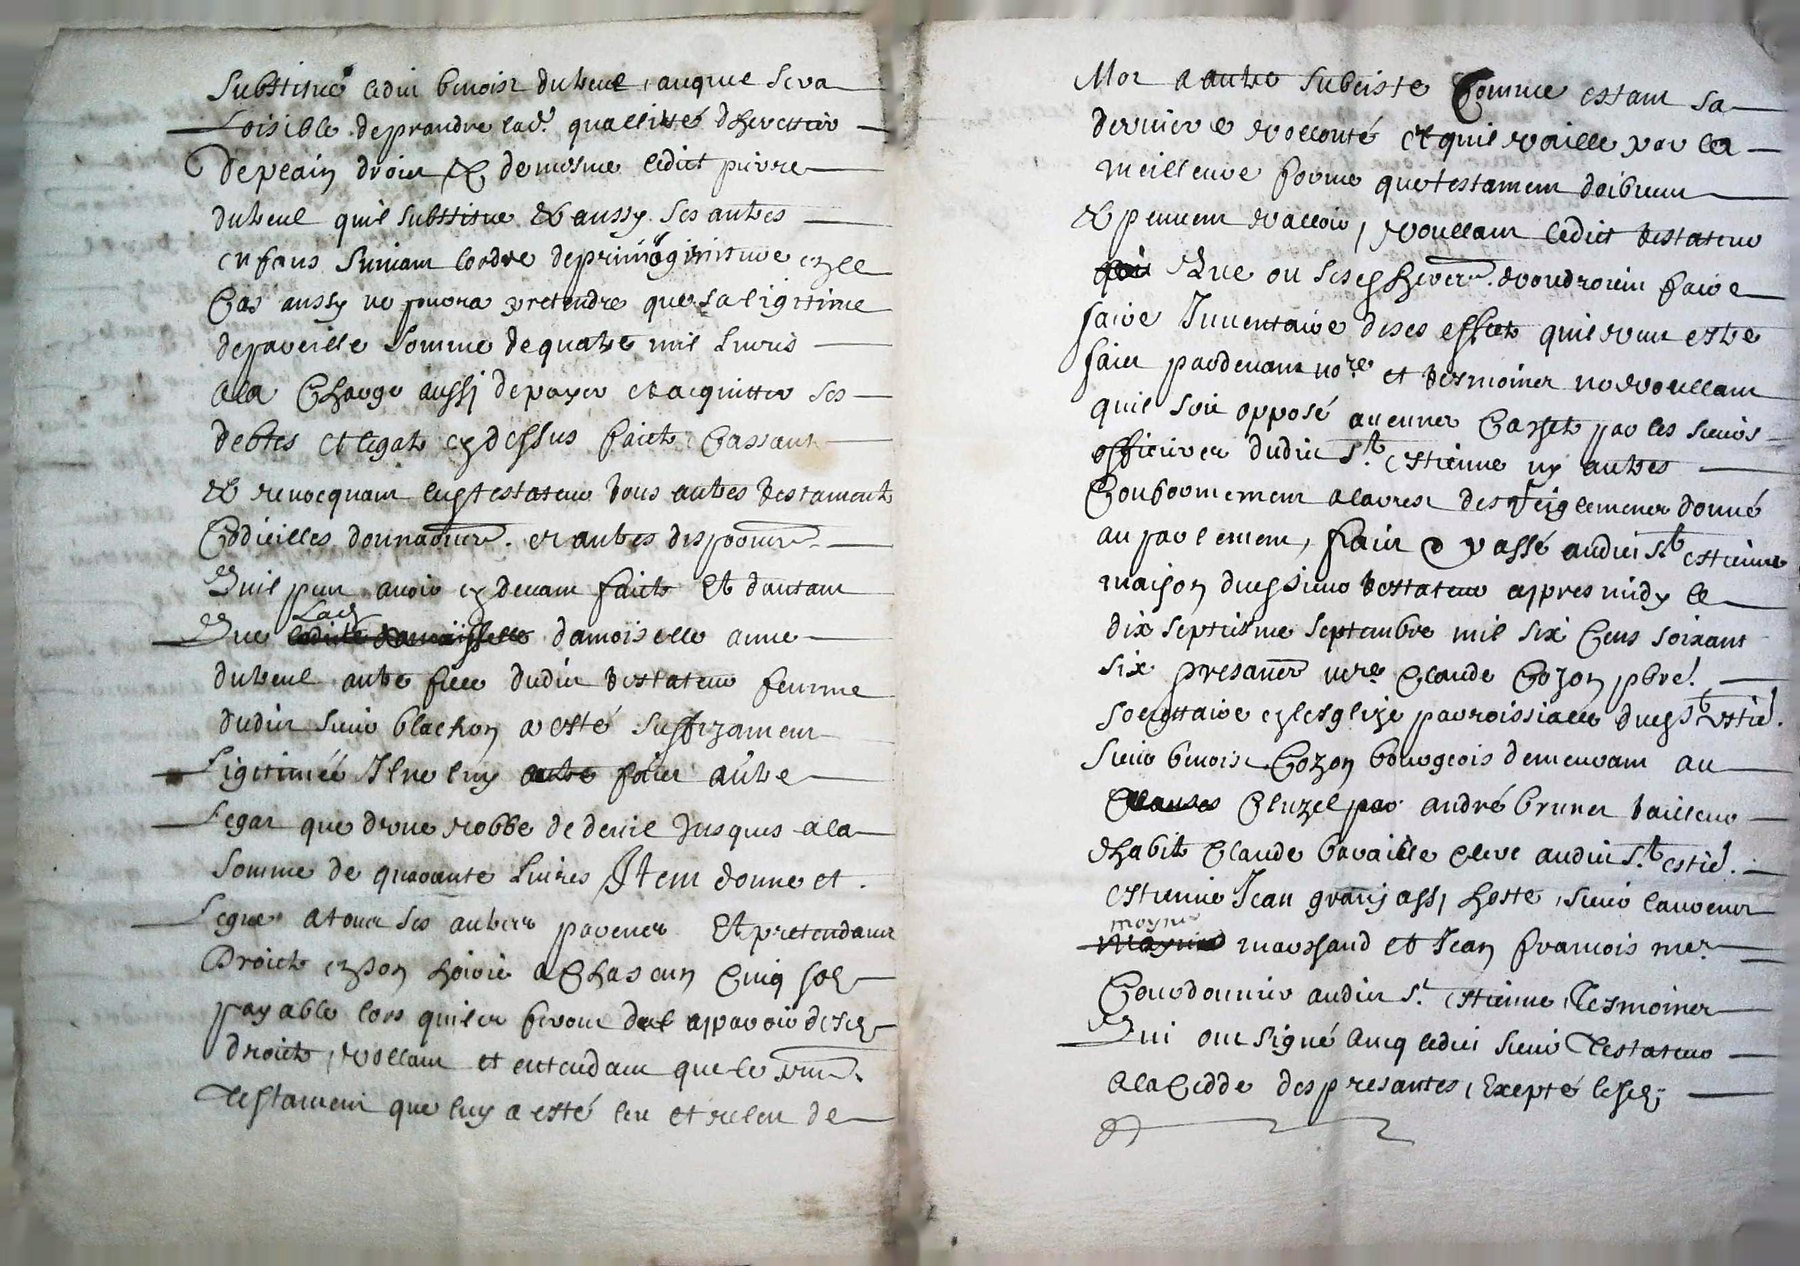 Substitué ledit benoist duteul, auquel sera
Loisible de prandre lad. quallitté dheretier
De plain droit & de mesme ledict pierre
duteul quil substitue & aussy ses autres
enfans suivant lordre de primogeniture enle
Cas aussy ne poura pretendre que sa ligitime
de pareille somme de quatre mil livres
ala Charge aussi de payer et acquitter ses
debtes et legats cy dessus faict Cassant
& revocquant led testateur tous autres testament
Coddicilles donnaõns. et autres disposõns
Quil peut avoir cy devant faict Et dautant
Que Lad damoiselle anne
duteul autre fille dudit testateur femme
dudit sieur blachon a esté suffizament
Ligitimée Il ne luy faict autre
Legat que dune robbe de deuil Jusques ala
somme de quarante livres Item donne et
Legue a tous ses autres parents Et pretendant
Droict en son hoirie a Chascun Cinq sols
payable lors quiles feront apparoir de ses
droict, vollant et entendant que le pnt
Testament que luy a esté leu et releu de
Mot a autre subciste Comme estant sa
derniere vollonté et quil vaille par la
meilleure forme que testament doibvent
& peuvent valloir, voullant ledict testateur
Que ou sesd heretiers voudroient faire
faire Inventaire de ses effect quil veut estre
fait pardevant nore et tesmoins ne voullant
quil soit opposé aucunes Cachet par les sieurs
officiers dudit St. estienne ny autres
Conformement alarest des reiglements donné
au parlement, fait & passé audict St estienne
maison dud sieur testateur appres midy le
dix septiesme septembre mil six Cens soixant
six presants mre Claude Cozon pbre
soecittaire en lesglize parroissialle dud St estie.
sieur benoist Cozon bourgeois demeurant au
Cluzel andré brunet tailleur
dhabit Claude bavaille clerc audit St. estie.
estienne Jean hoste, sieur laurent
moyne marchand et Jean francois mer
Courdonnier audit St. estienne, Tesmoins
Qui ont signé avecq ledict sieur Testateur
a la Cedde des presantes, Excepté lesd